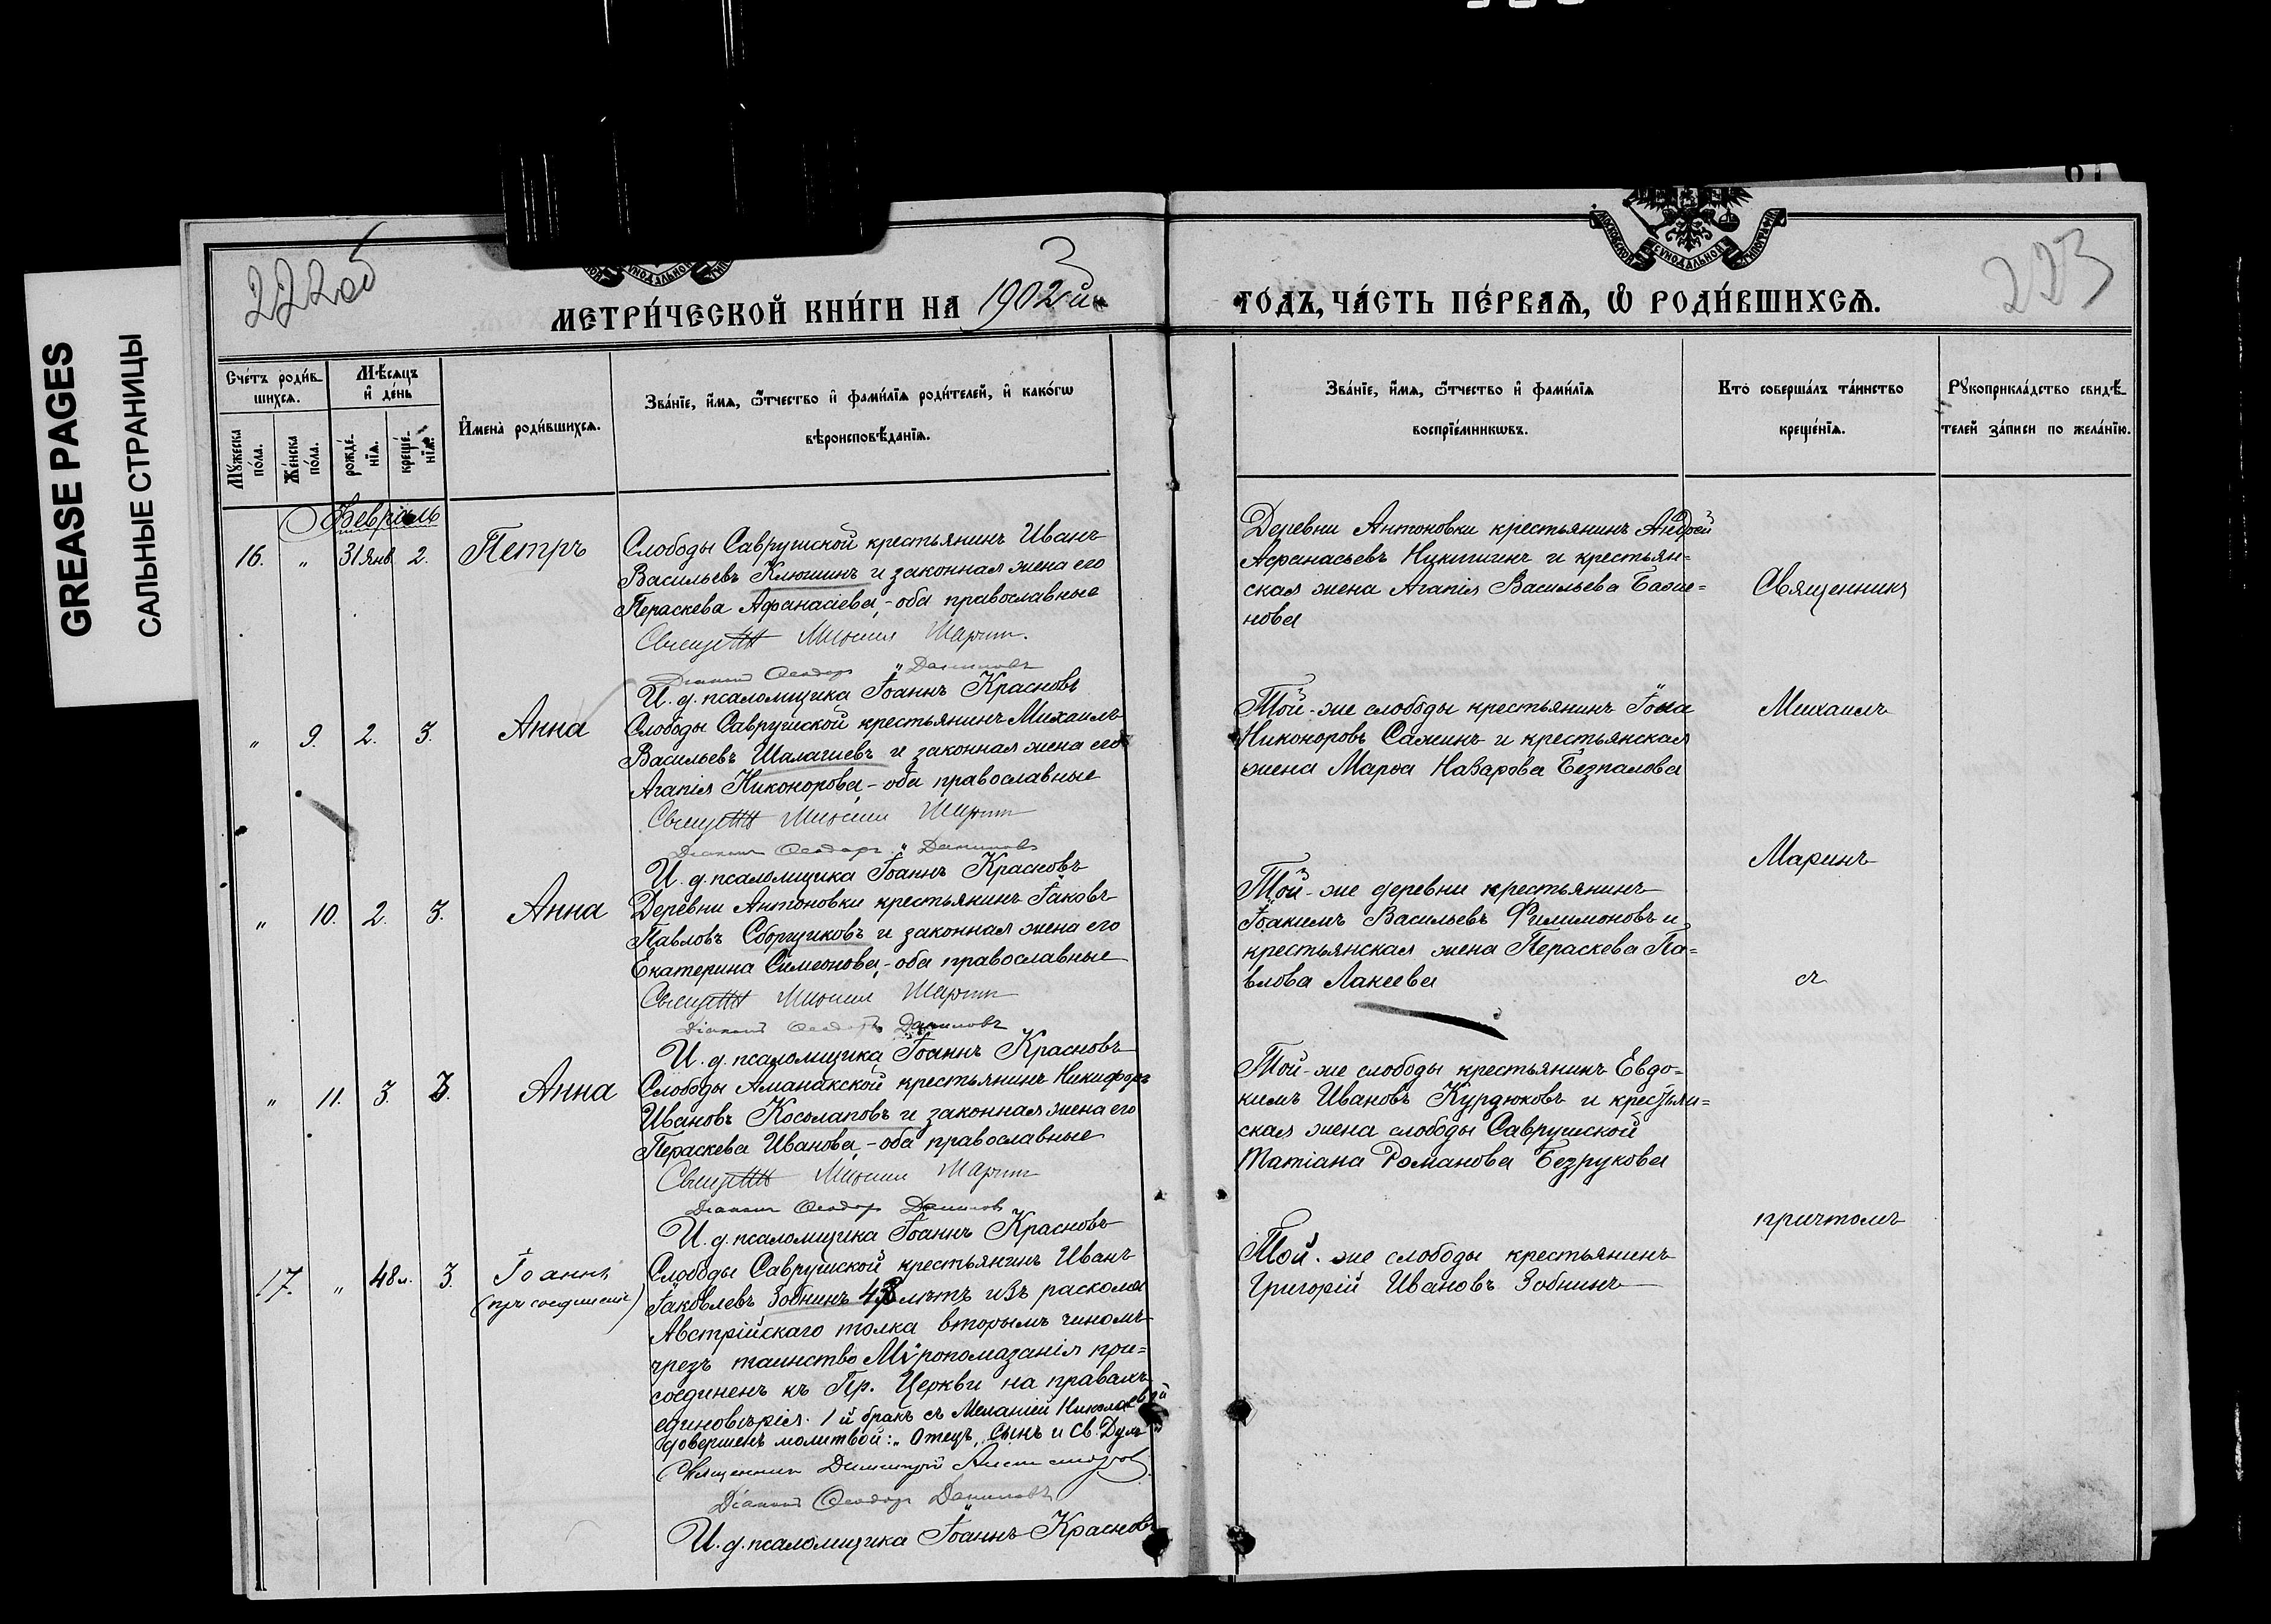 GREASE PAGES
САЛЬНЫЕ СТРАНИЦЫ
222об
223
МЕТРИ́ЧЕСКОЙ КНИ́ГИ НА 1902й
ГОДЪ, ЧА́СТЬ ПЕ́РВАѦ, Ѡ҆ РОДИ́ВШИХСѦ.
Сче́тъ роди́в-
шихсѧ.
Мѣ́сѧцъ
и҆ де́нь
Мꙋ́жеска
по́ла.
Же́нска
по́ла.
рожде́-
нїѧ.
креще́-
нїѧ.
И҆мена̀ роди́вшихсѧ.
Зва́нїе, и҆́мѧ, ѻ҆́тчество и҆ фами́лїѧ роди́телей, и҆ како́гѡ
вѣроисповѣ́данїѧ.
Зва́нїе, и҆́мѧ, ѻ҆́тчество и҆ фами́лїѧ
воспрїе́мникѡвъ.
Кто̀ соверша́лъ та́инство
креще́нїѧ.
Рꙋкоприкла́дство свидѣ́-
телей за́писи по жела́нїю.
Февраль
16. " 31 Янв. 2. Петръ
Слободы Саврушской крестьянинъ Иванъ
Васильевъ Клюшинъ и законная жена его
Параскева Афанасіева, - оба православные
Діаконъ Ѳеодоръ Даниловъ
И. д. псаломщика Іоаннъ Красновъ
Деревни Антоновки крестьянинъ Андрей
Афанасьевъ Никитинъ и крестьян=
ская жена Агапія Васильева
нова
Священникъ
" 9. 2. 3. Анна
Слободы Саврушской крестьянинъ Михаилъ
Васильевъ Шалагиевъ и законная жена его
Агапія Никонорова, - оба православные
Діаконъ Ѳеодоръ Даниловъ
И. д. псаломщика Іоаннъ Красновъ
Той-же слободы крестьянинъ Іона
Никоноровъ Сажинъ и крестьянская
жена Марѳа Назарова Безпалова
Михаилъ
Маринъ
" 10. 2. 3. Анна
Деревни Антоновки крестьянинъ Іаковъ
Павловъ Сборщиковъ и законная жена его
Екатерина Симеонова, - оба православные
Діаконъ Ѳеодоръ Даниловъ
И. д. псаломщика Іоаннъ Красновъ
Той-же деревни крестьянинъ
Іоакимъ Васильевъ Филимоновъ и
крестьянская жена Параскева Па=
влова Лакеева
съ
" 11. 3. 3. Анна
Слободы Аманакской крестьянинъ Никифоръ
Ивановъ Косолаповъ и законная жена его
Параскева Иванова, - оба православные
Діаконъ Ѳеодоръ Даниловъ
И. д. псаломщика Іоаннъ Красновъ
Той-же слободы крестьянинъ Евдо=
кимъ Ивановъ Курдюковъ и крестьян=
ская жена слободы Саврушской
Татіана Романова Безрукова
причтомъ
17. " 48 л. 3. Іоаннъ
(присоединеніе)
Слободы Саврушской крестьянинъ Иванъ
Іаковлевъ Зобнинъ 48 лѣтъ изъ раскола
Австрійскаго толка вторымъ чиномъ
чрезъ таинство Мѵропомазанія при=
соединенъ къ Пр. Церкви на правахъ
единовѣрія. 1й бракъ съ Меланіей Николаевой
довершенъ молитвой: „Отецъ, Сынъ и Св. Духъ"
Священникъ Димитрій
Діаконъ Ѳеодоръ Даниловъ
И. д. псаломщика Іоаннъ Красновъ
Той-же слободы крестьянинъ
Григорій Ивановъ Зобнинъ